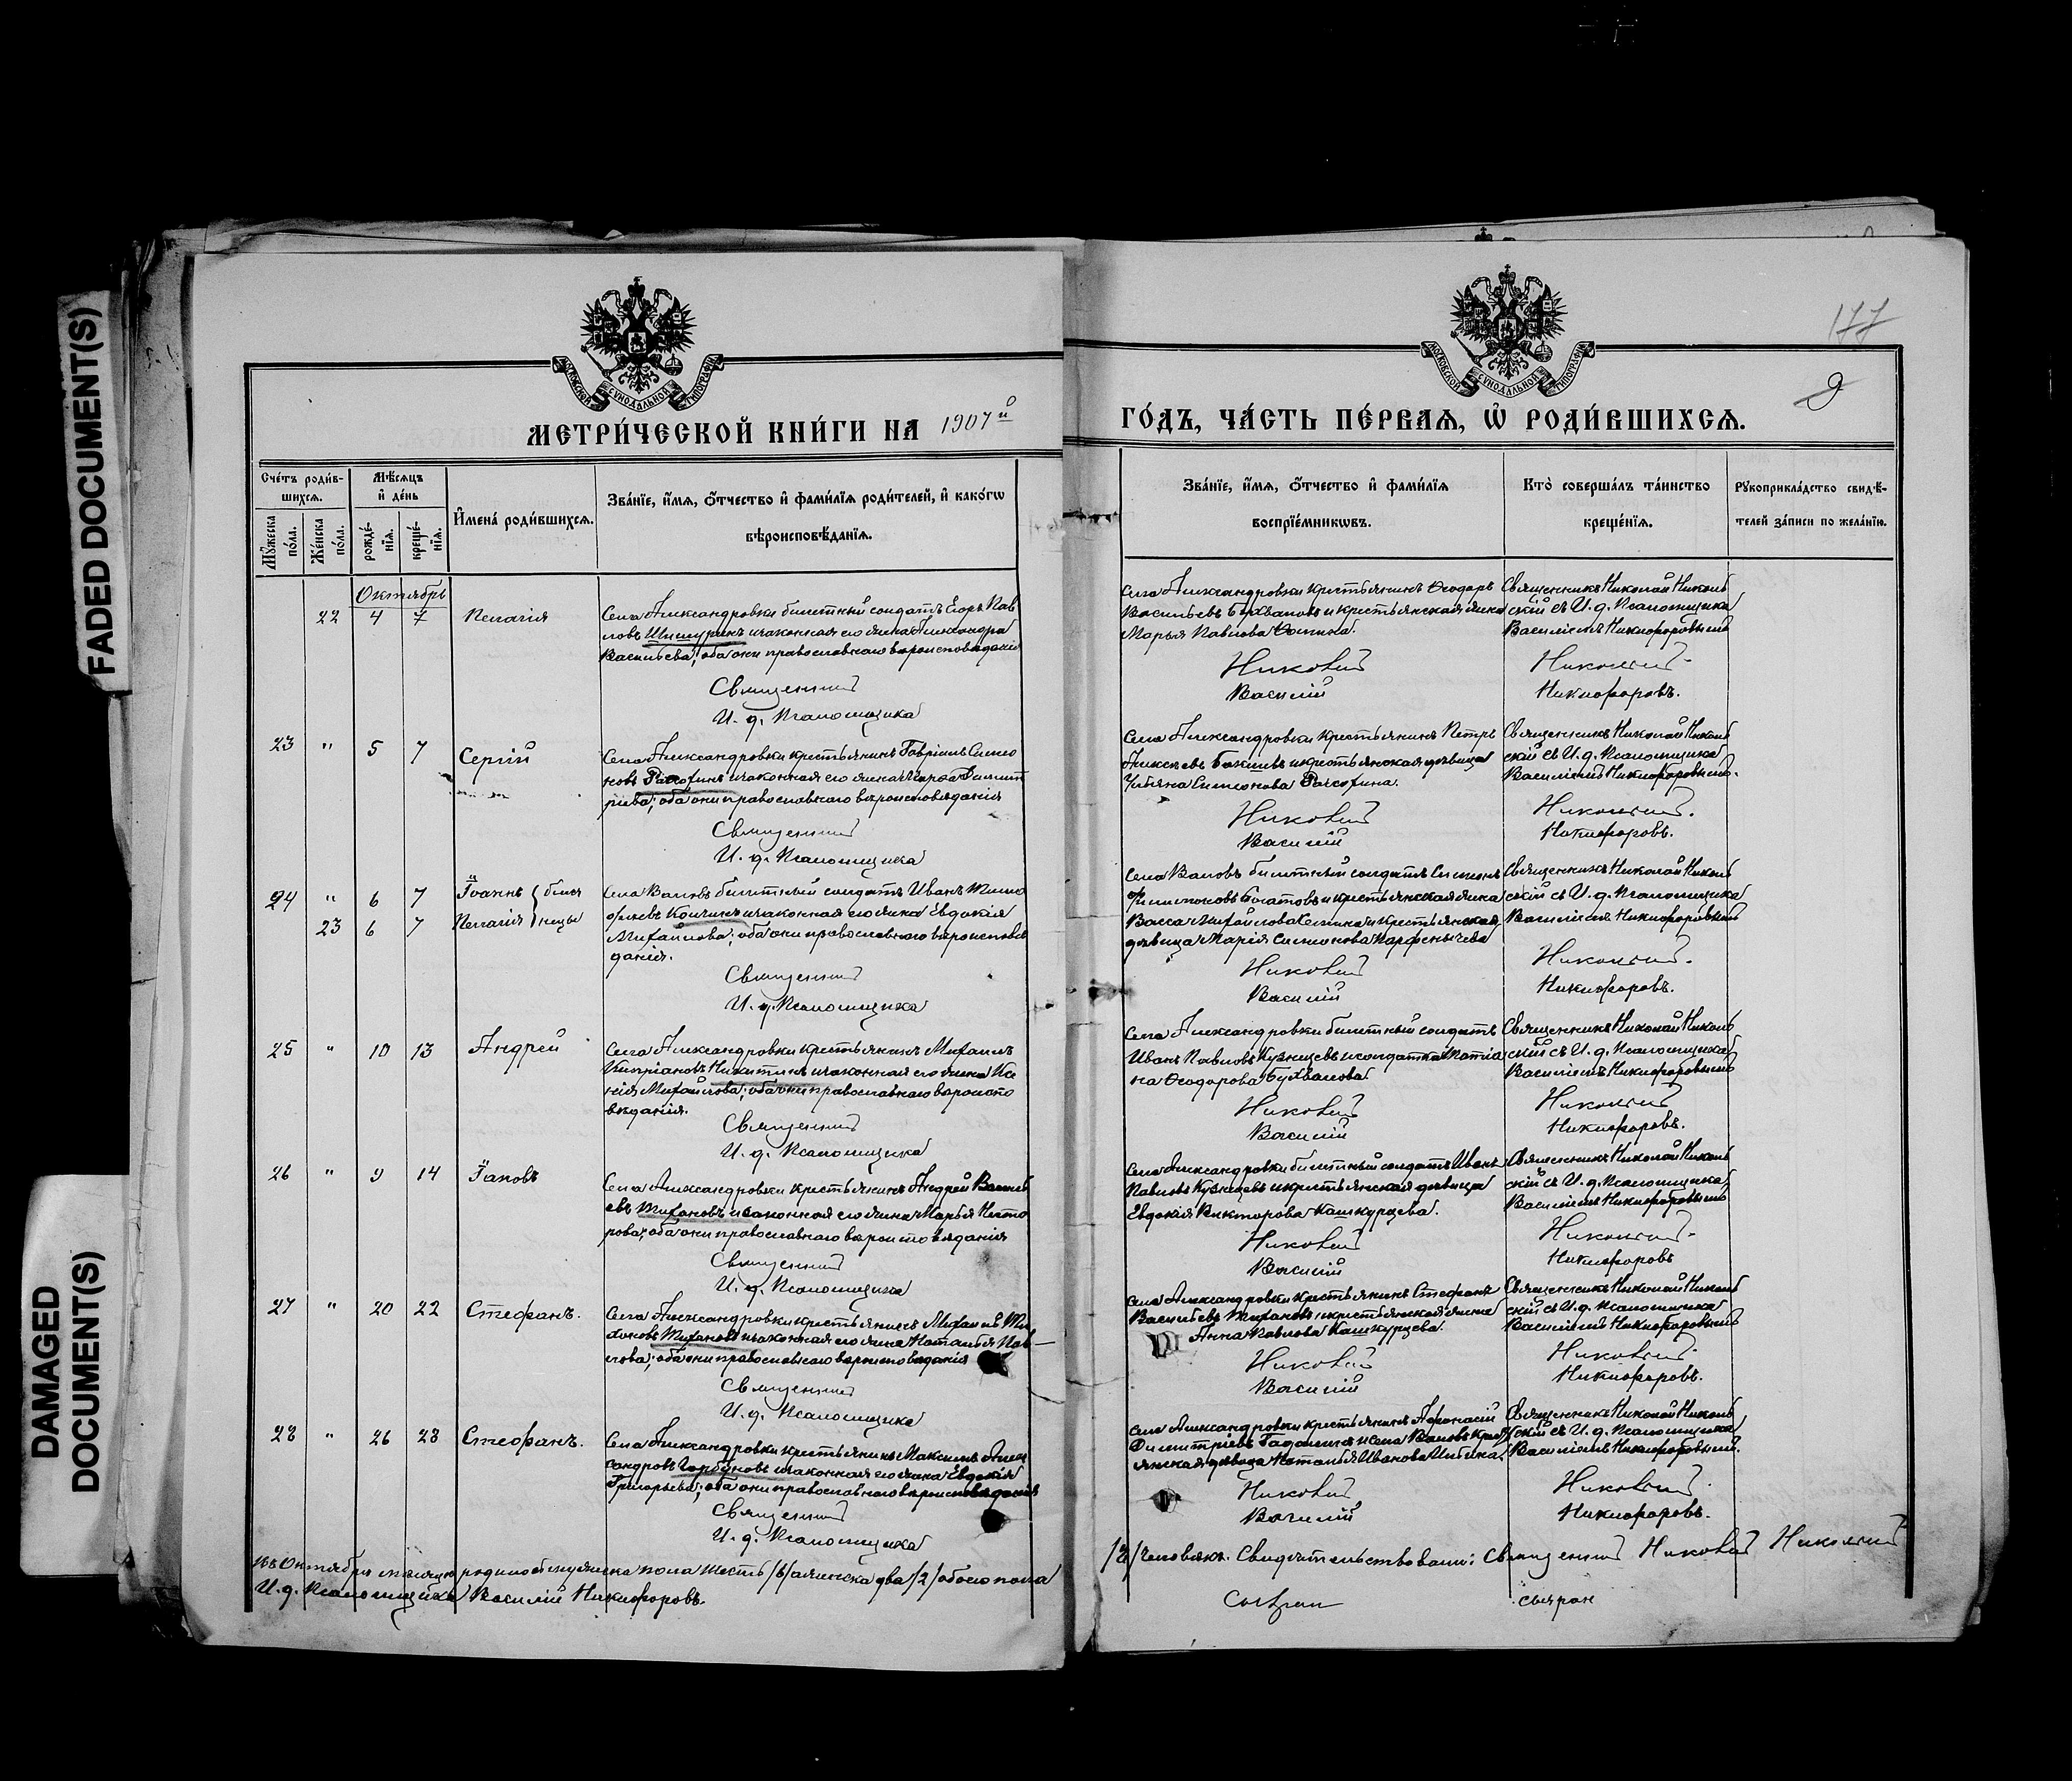 FADED DOCUMENT(S)
DAMAGED
DOCUMENT(S)
177
9
МОСКОВСКОЙ СѴНОДАЛЬНОЙ ТИПОГРАФІИ
МОСКОВСКОЙ СѴНОДАЛЬНОЙ ТИПОГРАФІИ
МЕТРИ́ЧЕСКОЙ КНИ́ГИ НА 1907й
ГО́ДЪ, ЧА́СТЬ ПЕ́РВАѦ, Ѽ РОДИ́ВШИХСѦ.
Сче́тъ роди́в-
шихсѧ.
Мꙋ́жеска
по́ла.
Же́нска
по́ла.
Мѣ́сѧцъ
и҆ де́нь
рожде́-
нїѧ.
креще́-
нїѧ.
И҆мена̀ роди́вшихсѧ.
Зва́нїе, и҆́мѧ, ѻ҆́тчество и҆ фами́лїѧ роди́телей, и҆ како́гѡ
вѣроисповѣ́данїѧ.
Зва́нїе, и҆́мѧ, ѻ҆́тчество и҆ фами́лїѧ
воспрїе́мникѡвъ.
Кто̀ соверша́лъ та́инство
креще́нїѧ.
Рꙋкоприкла́дство свидѣ́-
телей за́писи по жела́нїю.
Октябрь
22 4 7 Пелагія
Села Александровки билетный солдатъ Егоръ Пав
ловъ Шишуринъ и законная его жена Александра
Васильева; оба они православнаго вѣроисповѣданія
Священникъ
И. д. Псаломщика
Села Александровки крестьянинъ Ѳеодоръ
Васильевъ Бухваловъ и крестьянская жена
Марья Павлова Ѳомина.
Николай
Василій
Священникъ Николай Николь
скій съ И. д. Псаломщика
Василіемъ Никифоровымъ
Никольскій
Никифоровъ.
23 " 5 7 Сергій
Села Александровки крестьянинъ Гавріилъ Симео
новъ и законная его жена Димит
ріева; оба они православнаго вѣроисповѣданія
Священникъ
И. д. Псаломщика
Села Александровки крестьянинъ Петръ
Алексѣевъ и крестьянская дѣвица
Ульяна Симеонова
Николай
Василій
Священникъ Николай Николь
скій съ И. д. Псаломщика
Василіемъ Никифоровымъ.
Никольскій.
Никифоровъ.
24 " 6 7 Іоаннъ } близ
23 6 7 Пелагія } нецы
Села Валовъ билетный солдатъ Иванъ Тимо
феевъ и законная его жена Евдокія
Михайлова; оба они православнаго вѣроисповѣ
данія.
Священникъ
И. д. Псаломщика
Села Валовъ билетный солдатъ Симеонъ
Филимоновъ и крестьянская жена
Васса Михайлова и крестьянская
дѣвица Марія Симеонова Парфенычева
Николай
Василій
Священникъ Николай Николь
скій съ И. д. Псаломщика
Василіемъ Никифоровымъ
Никольскій.
Никифоровъ.
25 " 10 13 Андрей
Села Александровки крестьянинъ Михаилъ
Кипріановъ Никитинъ и законная его жена Ксе
нія Михайлова; оба они православнаго вѣроиспо
вѣданія.
Священникъ
И. д. Псаломщика
Села Александровки билетный солдатъ
Иванъ Павловъ Кузнецовъ и солдатка Татіа
на Ѳеодорова Бухвалова.
Николай
Василій
Священникъ Николай Николь
скій съ И. д. Псаломщика
Василіемъ Никифоровымъ
Никольскій
Никифоровъ.
26 " 9 14 Іаковъ
Села Александровки крестьянинъ Андрей Василь
евъ Тихановъ и законная его жена Марья Несто
рова; оба они православнаго вѣроисповѣданія
Священникъ
И. д. Псаломщика
Села Александровки билетный солдатъ Иванъ
Павловъ Кузнецовъ и крестьянская дѣвица
Евдокія Викторова Кашкурцева.
Николай
Василій
Священникъ Николай Николь
скій съ И. д. Псаломщика
Василіемъ Никифоровымъ
Никольскій.
Никифоровъ
27 " 20 22 Стефанъ.
Села Александровки крестьянинъ Михаилъ Ти
хоновъ Тихановъ и законная его жена Наталья Пав
лова; оба они православнаго вѣроисповѣданія
Священникъ
И. д. Псаломщика
Села Александровки крестьянинъ Стефанъ
Васильевъ Тихановъ и крестьянская жена
Анна Павлова Кашкурцева.
Николай
Василій
Священникъ Николай Николь
скій съ И. д. Псаломщика
Василіемъ Никифоровымъ
Никольскій.
Никифоровъ.
28 " 26 28 Стефанъ.
Села Александровки крестьянинъ Максимъ Алек
сандровъ Горбуновъ и законная его жена Евдокія
Григорьева; оба они православнаго вѣроисповѣданія
Священникъ
И. д. Псаломщика
Села Александровки крестьянинъ Афанасій
Димитріевъ и села Валовъ крес
тьянская дѣвица Наталья Иванова
Николай
Василій
Священникъ Николай Николь
скій съ И. д. Псаломщика
Василіемъ Никифоровымъ.
Никольскій.
Никифоровъ.
Въ Октябрѣ мѣсяцѣ родилось мужеска пола шесть /6/ а женска два /2/ обоего пола
/8/ человѣкъ. Свидѣтельствовали: Священникъ Николай Никольскій
И. д. Псаломщика Василій Никифоровъ.